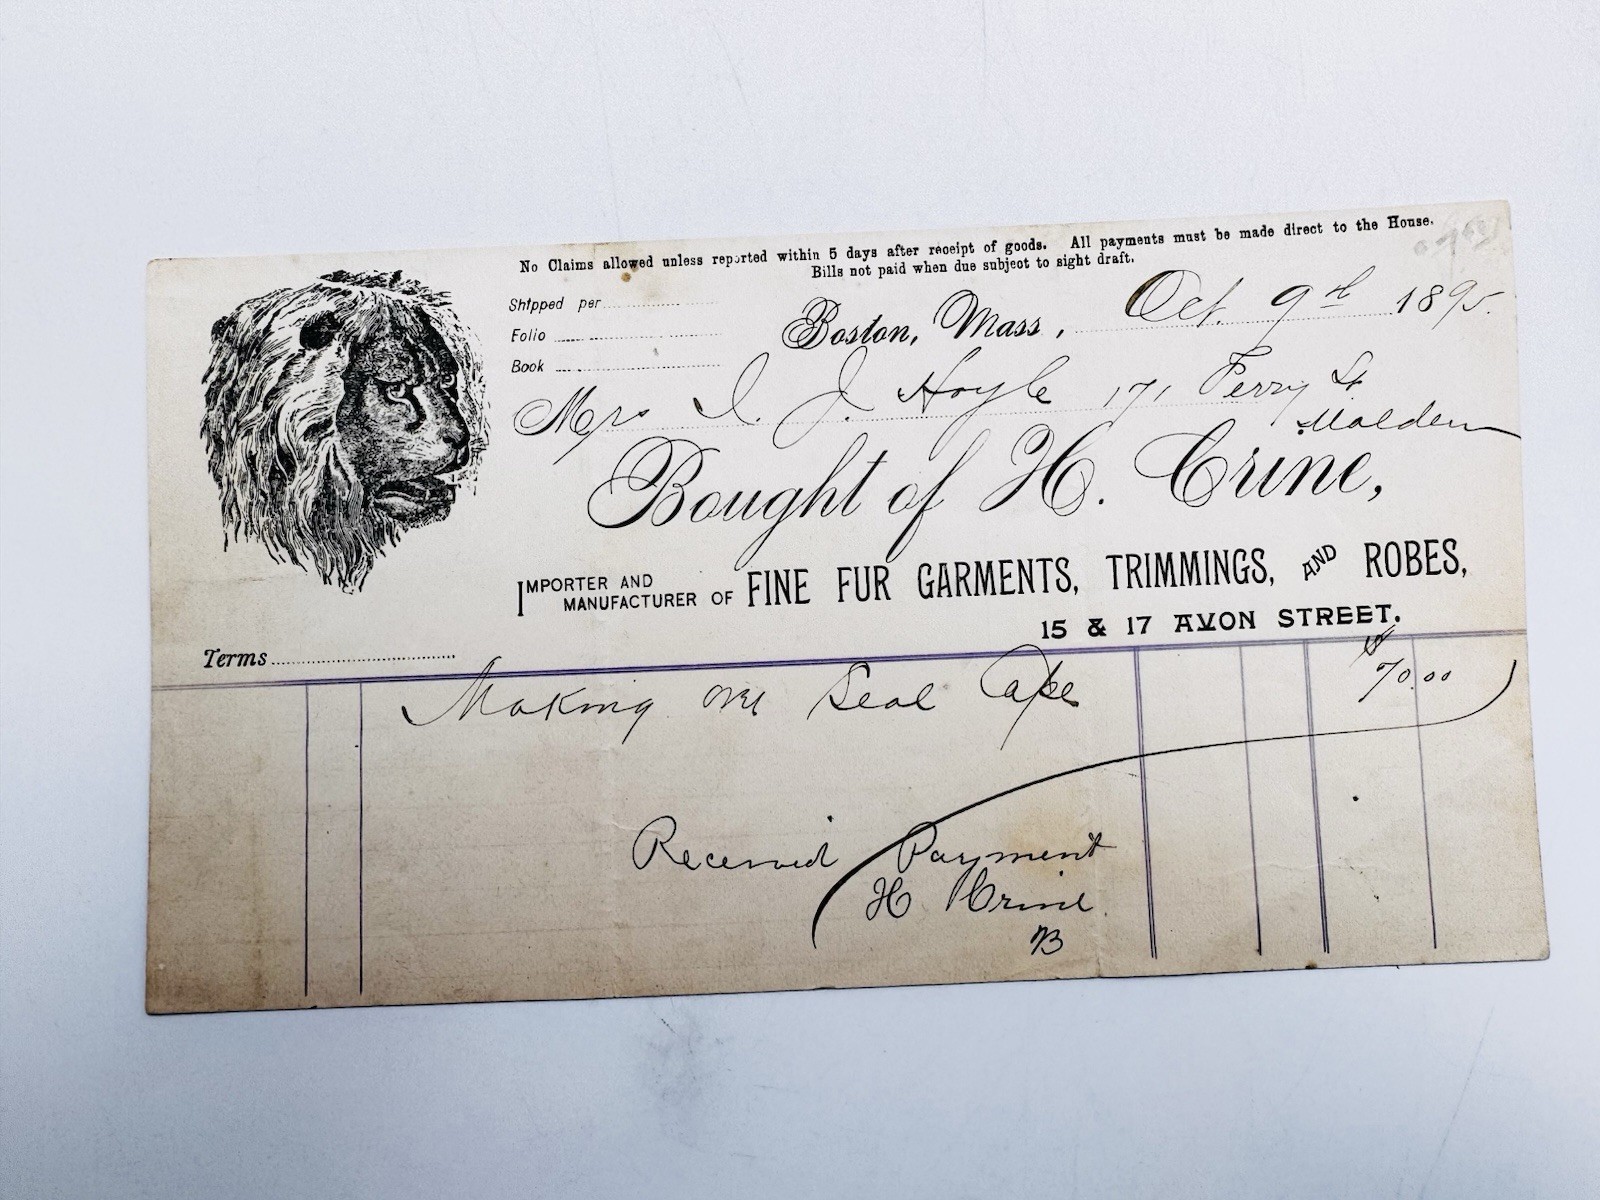 No Claims allowed unless reported within 5 days after receipt of goods. All payments must be made direct to the House.
Bills not paid when due subject to sight draft.
Shipped per
Folio
Book
Boston, Mass, Oct. 9th 1895.
Mrs I. J. Hoyle 171 Perry St
Malden
Bought of H. Crine,
IMPORTER AND MANUFACTURER OF FINE FUR GARMENTS, TRIMMINGS, AND ROBES,
15 & 17 AVON STREET.
Terms
Making over Seal Cape 70.00
Received Payment
H Crine